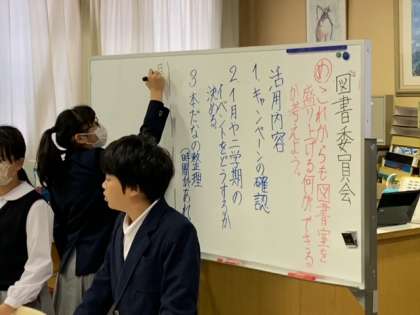 図書委員会
め これからも図書室を
盛り上げる何ができる
か考えよう。
活用内容
1. キャンペーンの確認
2 1月や三学期の
イベントをどうするか
決める。
3 本だなの整理
(時間があれ